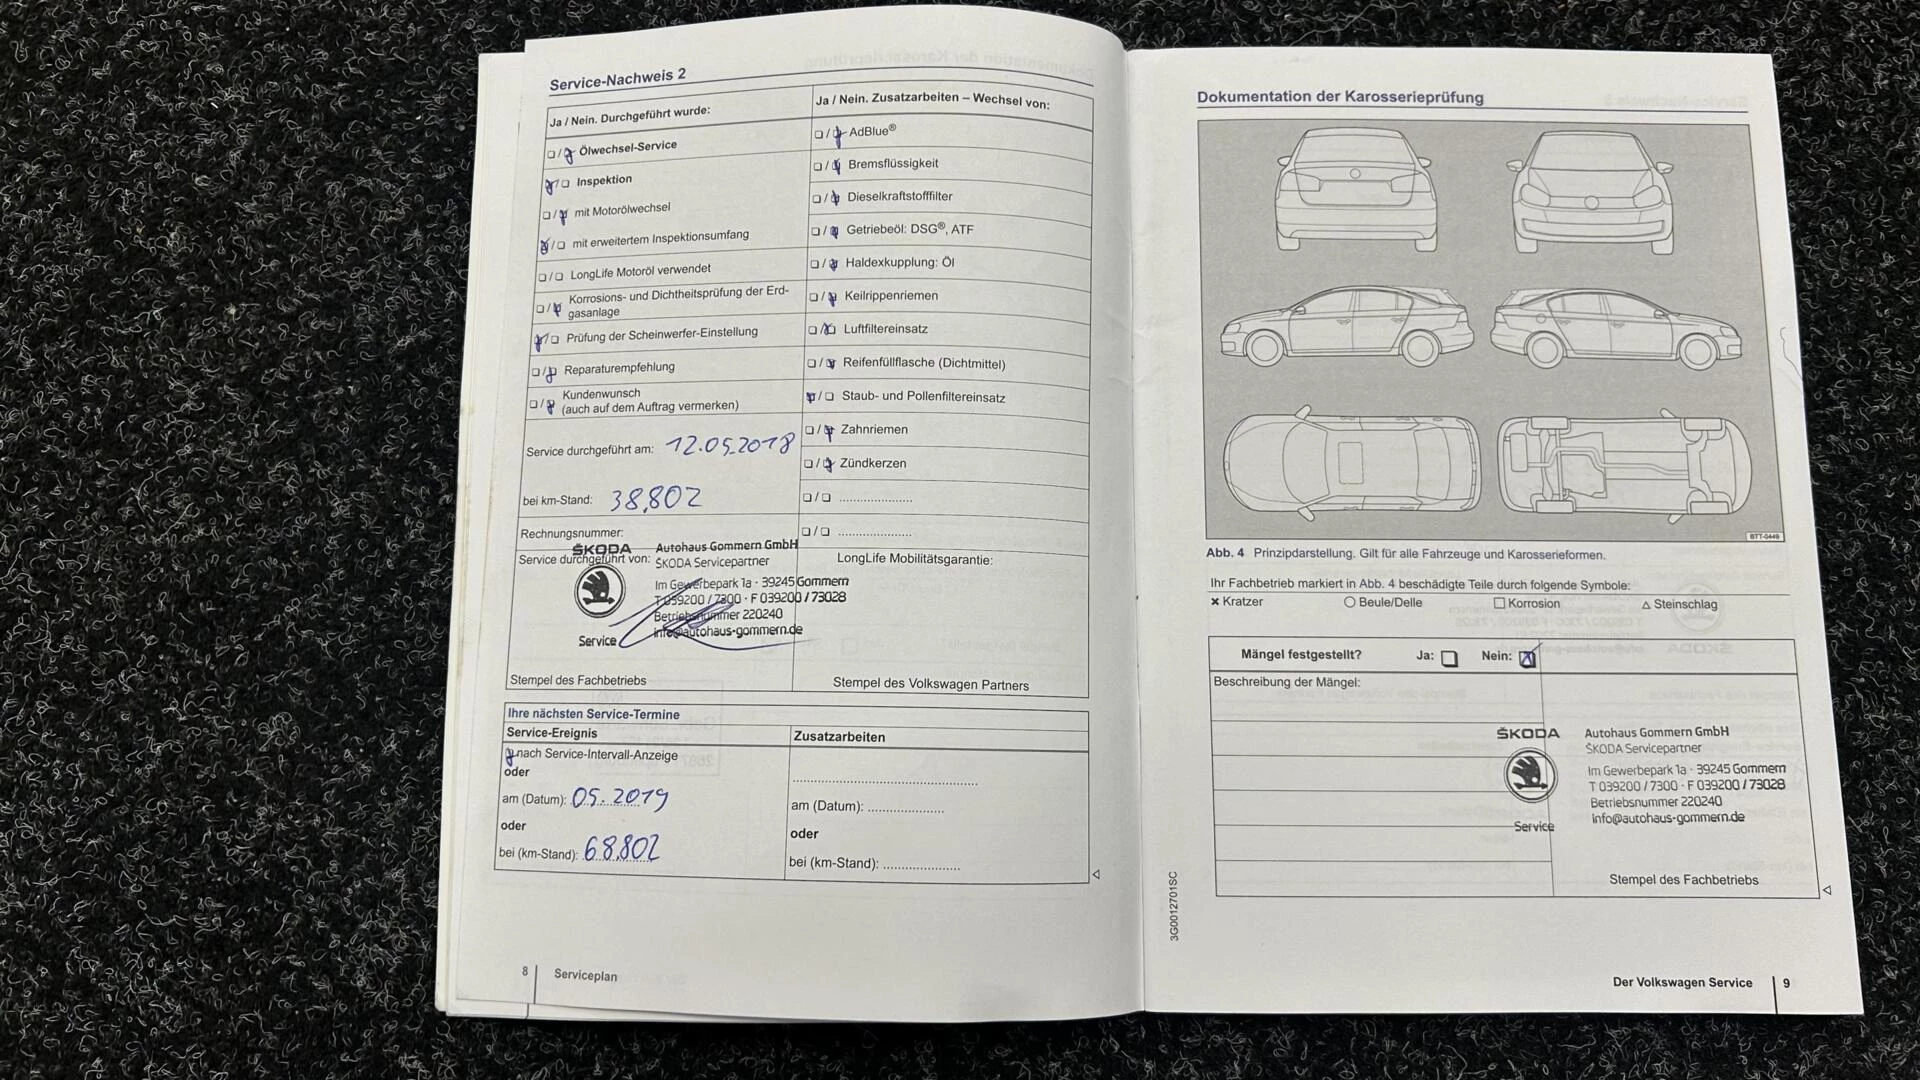 Service-Nachweis 2
Ja / Nein. Durchgeführt wurde:
Ölwechsel-Service
Inspektion
mit Motorölwechsel
mit erweitertem Inspektionsumfang
LongLife Motoröl verwendet
Korrosions- und Dichtheitsprüfung der Erd-
gasanlage
Prüfung der Scheinwerfer-Einstellung
Reparaturempfehlung
Kundenwunsch
(auch auf dem Auftrag vermerken)
Service durchgeführt am: 12.05.2018
bei km-Stand: 38,802
Rechnungsnummer:
Service durchgeführt von:
ŠKODA
Autohaus Gommern GmbH
ŠKODA Servicepartner
Im Gewerbepark 1a · 39245 Gommern
T 039200 / 7300 · F 039200 / 73028
Betriebsnummer 220240
info@autohaus-gommern.de
Service
Stempel des Fachbetriebs
Ja / Nein. Zusatzarbeiten – Wechsel von:
AdBlue®
Bremsflüssigkeit
Dieselkraftstofffilter
Getriebeöl: DSG®, ATF
Haldexkupplung: Öl
Keilrippenriemen
Luftfiltereinsatz
Reifenfüllflasche (Dichtmittel)
Staub- und Pollenfiltereinsatz
Zahnriemen
Zündkerzen
LongLife Mobilitätsgarantie:
Stempel des Volkswagen Partners
Ihre nächsten Service-Termine
Service-Ereignis
nach Service-Intervall-Anzeige
oder
am (Datum): 05.2019
oder
bei (km-Stand): 68.802
Zusatzarbeiten
am (Datum):
oder
bei (km-Stand):
8 Serviceplan
Dokumentation der Karosserieprüfung
BTT-0449
Abb. 4 Prinzipdarstellung. Gilt für alle Fahrzeuge und Karosserieformen.
Ihr Fachbetrieb markiert in Abb. 4 beschädigte Teile durch folgende Symbole:
× Kratzer ○ Beule/Delle □ Korrosion △ Steinschlag
Mängel festgestellt? Ja: Nein:
Beschreibung der Mängel:
ŠKODA
Autohaus Gommern GmbH
ŠKODA Servicepartner
Im Gewerbepark 1a · 39245 Gommern
T 039200 / 7300 · F 039200 / 73028
Betriebsnummer 220240
info@autohaus-gommern.de
Service
Stempel des Fachbetriebs
3G0012701SC
Der Volkswagen Service 9